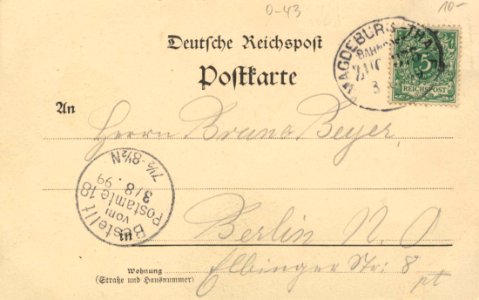 0-43
10-
Deutsche Reichspost
Postkarte
MAGDEBURG-THA
BAHNPOST
ZUG
3
5
REICHSPOST
An
Herrn Bruno Beyer,
Bestellt
vom
Postamte 18
3/8.99
7½-8½N
in
Berlin N. O
Wohnung
(Straße und Hausnummer)
Elbinger Str: 8
pt